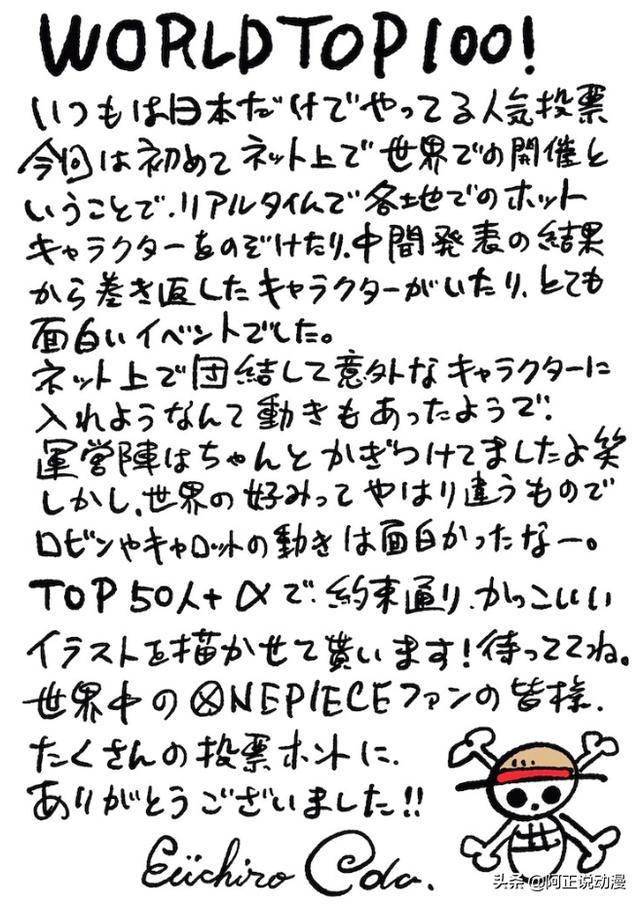 WORLD TOP 100!
いつもは日本だけでやってる人気投票
今回は初めてネット上で世界での開催と
いうことで、リアルタイムで各地でのホット
キャラクターをのぞけたり、中間発表の結果
から巻き返したキャラクターがいたり、とても
面白いイベントでした。
ネット上で団結して意外なキャラクターに
入れようなんて動きもあったようで、
運営陣はちゃんとかぎつけてましたよ笑
しかし、世界の好みってやはり違うもので
ロビンやキャロットの動きは面白かったなー。
TOP50人+αで、約束通り、かっこいい
イラストを描かせて貰います!待っててね。
世界中のONEPIECEファンの皆様、
たくさんの投票ホントに、
ありがとうございました!!
Eiichiro Oda.
头条 @阿正说动漫